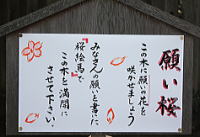 願い桜
この木に願いの花を
咲かせましょう
みなさんの願いを書いた
桜絵馬で
この木を満開に
させて下さい。